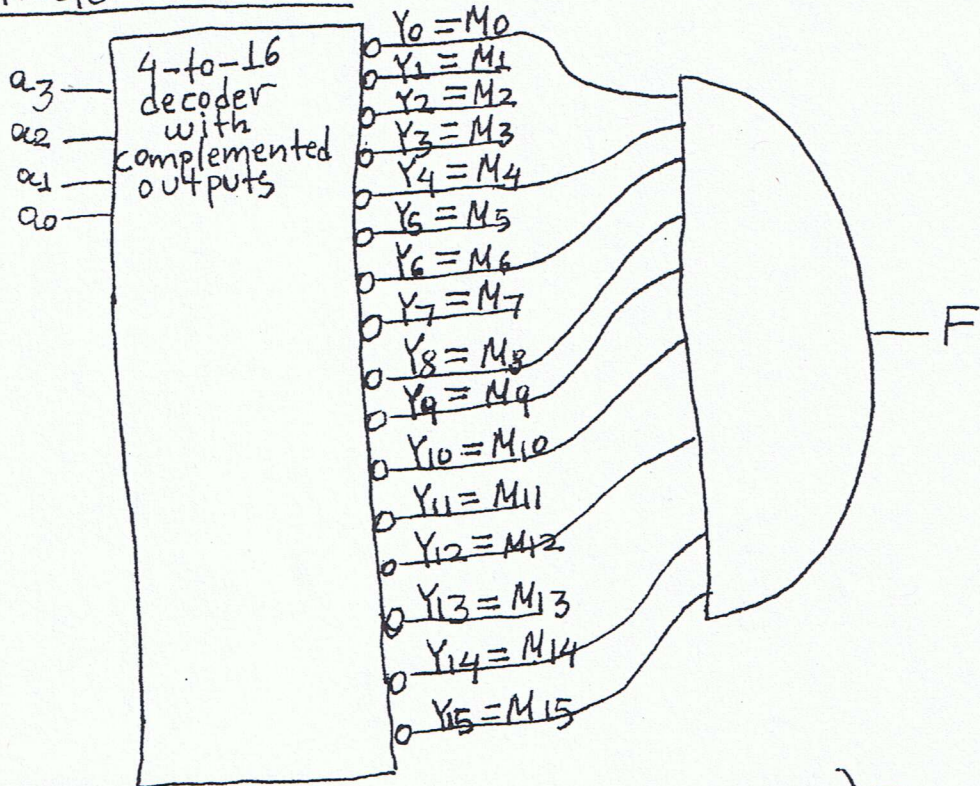 Y0 = M0
4-to-16
decoder
with
complemented
outputs
a3
a2
a1
a0
Y1 = M1
Y2 = M2
Y3 = M3
Y4 = M4
Y5 = M5
Y6 = M6
Y7 = M7
Y8 = M8
Y9 = M9
Y10 = M10
Y11 = M11
Y12 = M12
Y13 = M13
Y14 = M14
Y15 = M15
F